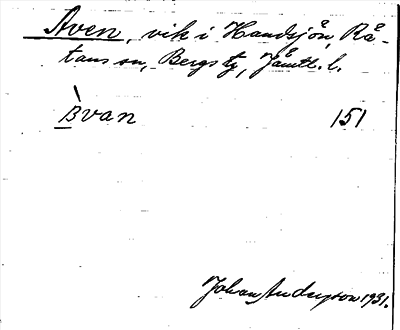 Aven, vik i Handsjön, Rä-
tans sn, Bergs tg, Jämtl. l.
Bvan 151
Johan Anderson 1931.